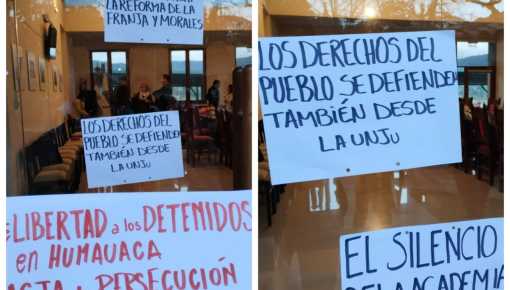 LA REFORMA DE LA
FRANJA Y MORALES
LOS DERECHOS DEL
PUEBLO SE DEFIENDEN
TAMBIÉN DESDE
LA UNJu
LIBERTAD a los DETENIDOS
en HUMAUACA
PERSECUCIÓN
LOS DERECHOS DEL
PUEBLO SE DEFIENDEN
TAMBIÉN DESDE
LA UNJu
EL SILENCIO
DE LA ACADEMIA